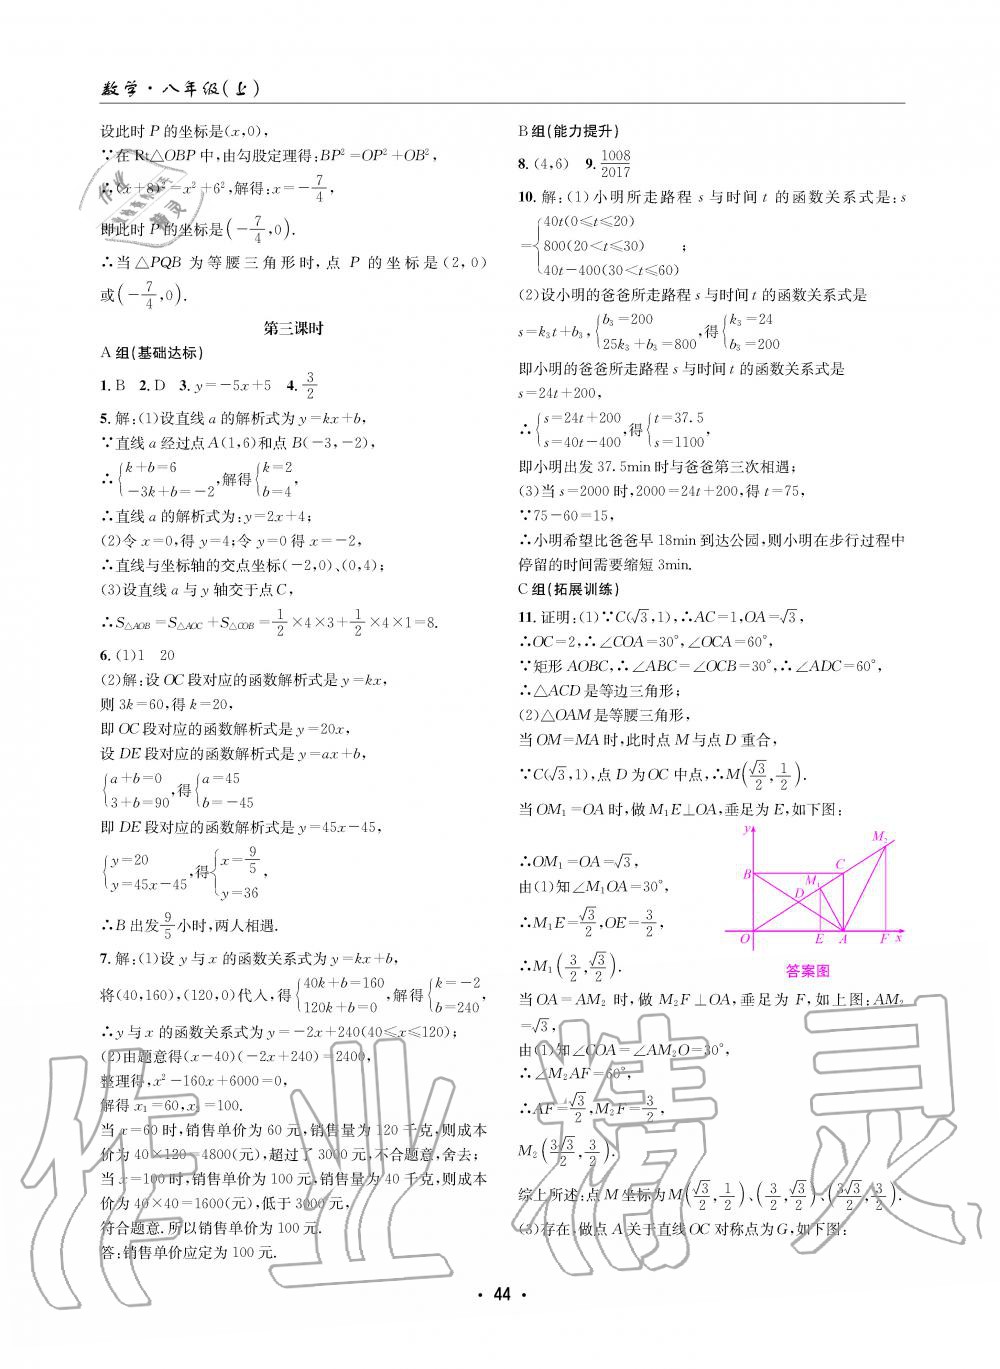 数学·八年级(上)
设此时 P 的坐标是(x,0),
∵在 Rt△OBP 中,由勾股定理得:BP²=OP²+OB²,
∴(x+8)²=x²+6²,解得:x=-7/4,
即此时 P 的坐标是(-7/4,0).
∴当△PQB 为等腰三角形时,点 P 的坐标是(2,0)
或(-7/4,0).
第三课时
A 组(基础达标)
1. B 2. D 3. y=-5x+5 4. 3/2
5. 解:(1)设直线 a 的解析式为 y=kx+b,
∵直线 a 经过点 A(1,6)和点 B(-3,-2),
∴{k+b=6
-3k+b=-2,解得{k=2
b=4,
∴直线 a 的解析式为:y=2x+4;
(2)令 x=0,得 y=4;令 y=0 得 x=-2,
∴直线与坐标轴的交点坐标(-2,0)、(0,4);
(3)设直线 a 与 y 轴交于点 C,
∴S△AOB=S△AOC+S△COB=1/2×4×3+1/2×4×1=8.
6. (1)1 20
(2)解:设 OC 段对应的函数解析式是 y=kx,
则 3k=60,得 k=20,
即 OC 段对应的函数解析式是 y=20x,
设 DE 段对应的函数解析式是 y=ax+b,
{a+b=0
3+b=90,得{a=45
b=-45
即 DE 段对应的函数解析式是 y=45x-45,
{y=20
y=45x-45,得{x=9/5
y=36,
∴B 出发9/5小时,两人相遇.
7. 解:(1)设 y 与 x 的函数关系式为 y=kx+b,
将(40,160),(120,0)代入,得{40k+b=160
120k+b=0,解得{k=-2
b=240,
∴y 与 x 的函数关系式为 y=-2x+240(40≤x≤120);
(2)由题意得(x-40)(-2x+240)=2400,
整理得,x²-160x+6000=0,
解得 x₁=60,x₂=100.
当 x=60 时,销售单价为 60 元,销售量为 120 千克,则成本
价为 40×120=4800(元),超过了 3000 元,不合题意,舍去;
当 x=100 时,销售单价为 100 元,销售量为 40 千克,则成本
价为 40×40=1600(元),低于 3000 元,
符合题意.所以销售单价为 100 元.
答:销售单价应定为 100 元.
B 组(能力提升)
8. (4,6) 9. 1008/2017
10. 解:(1)小明所走路程 s 与时间 t 的函数关系式是:s
={40t(0≤t≤20)
800(20<t≤30)
40t-400(30<t≤60);
(2)设小明的爸爸所走路程 s 与时间 t 的函数关系式是
s=k₃t+b₃,{b₃=200
25k₃+b₃=800,得{k₃=24
b₃=200
即小明的爸爸所走路程 s 与时间 t 的函数关系式是
s=24t+200,
∴{s=24t+200
s=40t-400,得{t=37.5
s=1100,
即小明出发 37.5min 时与爸爸第三次相遇;
(3)当 s=2000 时,2000=24t+200,得 t=75,
∵75-60=15,
∴小明希望比爸爸早 18min 到达公园,则小明在步行过程中
停留的时间需要缩短 3min.
C 组(拓展训练)
11. 证明:(1)∵C(√3,1),∴AC=1,OA=√3,
∴OC=2,∴∠COA=30°,∠OCA=60°,
∵矩形 AOBC,∴∠ABC=∠OCB=30°,∴∠ADC=60°,
∴△ACD 是等边三角形;
(2)△OAM 是等腰三角形,
当 OM=MA 时,此时点 M 与点 D 重合,
∵C(√3,1),点 D 为 OC 中点,∴M(√3/2,1/2).
当 OM₁=OA 时,做 M₁E⊥OA,垂足为 E,如下图:
∴OM₁=OA=√3,
由(1)知∠M₁OA=30°,
∴M₁E=√3/2,OE=3/2,
∴M₁(3/2,√3/2).
y M₂ B C M₁ D O E A F x
答案图
当 OA=AM₂ 时,做 M₂F⊥OA,垂足为 F,如上图:AM₂
=√3,
由(1)知∠COA=∠AM₂O=30°,
∴∠M₂AF=60°,
∴AF=√3/2,M₂F=3/2,
M₂(3√3/2,3/2).
综上所述:点 M 坐标为 M(√3/2,1/2)、(3/2,√3/2)、(3√3/2,3/2).
(3)存在.做点 A 关于直线 OC 对称点为 G,如下图:
· 44 ·
作业精灵